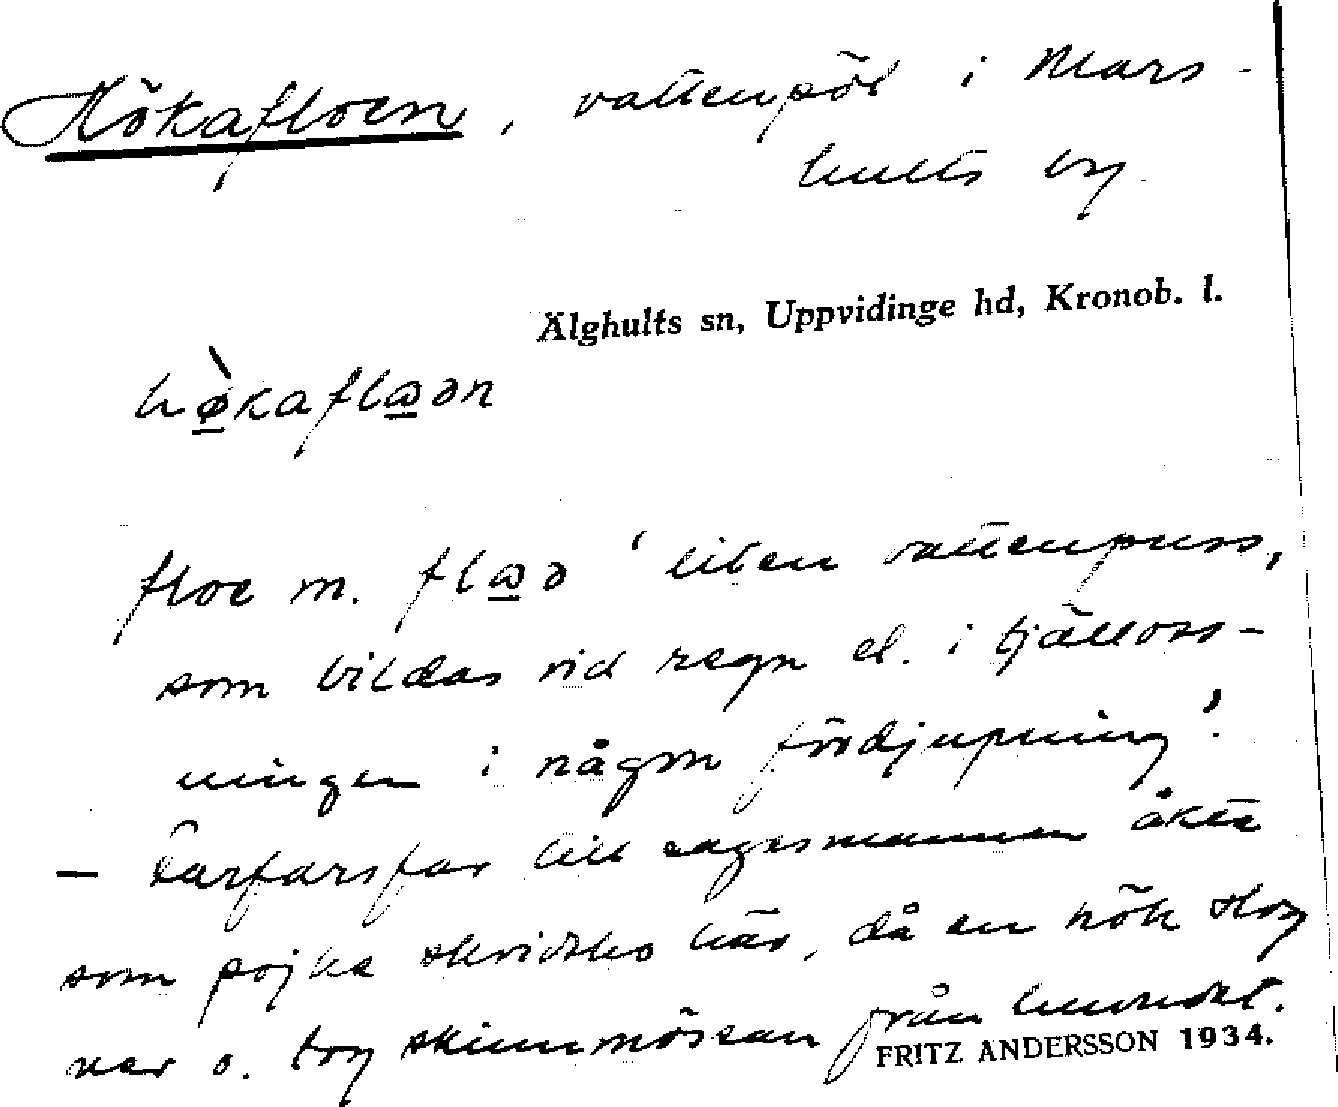 Hökafloen, vattenpöl i Mars-
hults by.
Älghults sn, Uppvidinge hd, Kronob. l.
hø̀kaflωən
floe m. flωə 'liten vattenpuss,
som bildas vid regn el. i tjälloss-
ningen i någon fördjupning'.
— Farfarsfar till sagesmannen åkte
som pojke skridsko här, då en hök slog
ner o. tog skinnmössan från huvudet.
FRITZ ANDERSSON 1934.